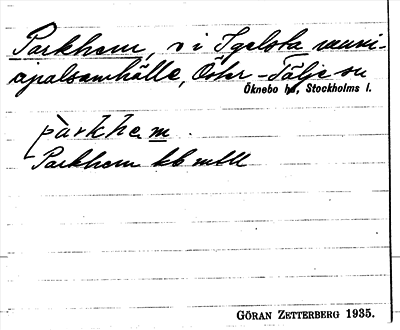 Parkhem, v i Igelsta muni-
cipalsamhälle, Öster-Tälje sn
Öknebo hd, Stockholms l.
pàrkhem.
Parkhem kb mtll
GÖRAN ZETTERBERG 1935.